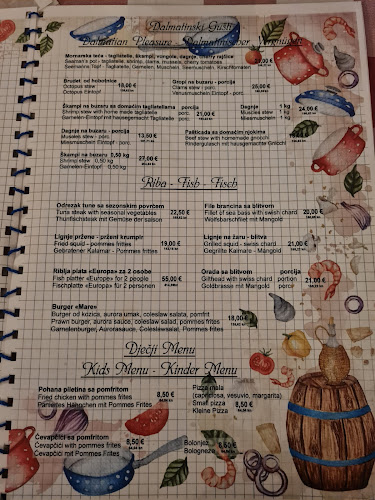 Dalmatinski Gušti
Dalmatian Pleasure - Dalmatinischer
Mornarska teća - tagliatelle, škampi, vongole, dagnje, cherry rajčice
Seaman's pot - tagliatelle, shrimp, clams, mussels, cherry tomatoes
Seemanns Topf - Tagliatelle, Garnelen, Muscheln, Miesmuscheln, Kirschtomaten
Brudet od hobotnice
Octopus stew 18,00 €
Octopus Eintopf
Gropi na buzaru - porcija
Clams stew - porc. 25,00 €
Venusmuscheln Eintopf - porc.
Škampi na buzaru sa domaćim tagliatellama porcija
Shrimp stew with home made tagliatelle porc. 21,00 €
Garnelen-Eintopf mit hausgemachten Tagliatelle porc.
Dagnje 1 kg
Mussels stew 1 kg 24,00 €
Miesmuscheln Eintopf 1 kg
Dagnje na buzaru - porcija
Muscles stew - porc. 13,50 €
Miesmuschein Eintopf - porc.
Pašticada sa domaćim njokima
Beef stew with homemade gnocchi
Rindergulasch mit hausgemachte Gnocchi
Škampi na buzaru 0,50 kg
Shrimp stew 0,50 kg 27,00 €
Garnelen-Eintopf
Riba - Fish - Fisch
Odrezak tune sa sezonskim povrćem
Tuna steak with seasonal vegetables 22,50 €
Thunfischsteak mit Gemüse der saison
File brancina sa blitvom
Fillet of sea bass with swiss chard 20,00 €
Wolfsbarschfilet mit Mangold
Lignje pržene - prženi krumpir
Fried squid - pommes frites 19,00 €
Gebratener Kalamar - Pommes Frittes
Lignje na žaru - blitva
Grilled squid - swiss chard 21,00 €
Gegrillte Kalmare - Mangold
Riblja plata «Europa» za 2 osobe
Fish platter «Europa» for 2 people 55,00 €
Fischplatte «Europa» für 2 personen
Orada sa blitvom porcija
Gilthead with swiss chard portion 21,00 €
Goldbrasse mit Mangold Porcion
Burger «Mare»
Burger od kozica, aurora umak, coleslaw salata, pomfrit
Prawn burger, aurora sauce, coleslaw salad, pommes frites 18,00 €
Garnelenburger, Aurorasauce, Coleslawsalat, Pommes Frites
Dječji Menu
Kids Menu - Kinder Menu
Pohana piletina sa pomfritom
Fried chicken with pommes frites 8,50 €
Paniertes Hähnchen mit Pommes Frites
Pizza mala
(capricosa, vesuvio, margarita)
Small pizza 8,50 €
Kleine Pizza
Ćevapčići sa pomfritom
Ćevapčići with pommes frites 8,50 €
Ćevapčići mit Pommes Frites
Bolonjez 8,50 €
Bolognese